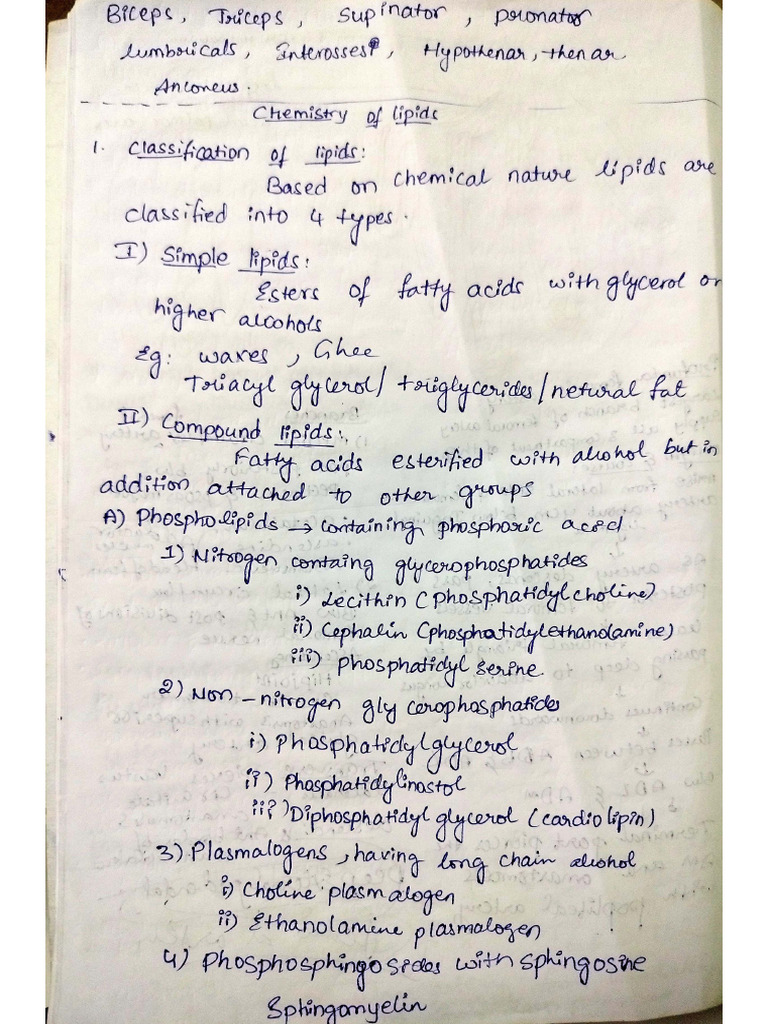 Biceps, Triceps, Supinator, pronator
lumbricals, Interosses, Hypothenar, thenar
Anconeus.
Chemistry of lipids
1. Classification of lipids:
Based on chemical nature lipids are
classified into 4 types.
I) Simple lipids:
Esters of fatty acids with glycerol or
higher alcohols
Eg: waxes, Ghee
Triacyl glycerol/ triglycerides/netural fat
II) Compound lipids:
Fatty acids esterified with alcohol but in
addition attached to other groups
A) Phospholipids → containing phosphoric acid
1) Nitrogen containg glycerophosphatides
i) Lecithin (phosphatidylcholine)
ii) Cephalin (phosphatidylethanolamine)
iii) phosphatidyl serine
2) Non-nitrogen glycerophosphatides
i) Phosphatidylglycerol
ii) Phosphatidylinostol
iii) Diphosphatidyl glycerol (cardiolipin)
3) Plasmalogens, having long chain alcohol
i) Choline plasmalogen
ii) Ethanolamine plasmalogen
4) Phosphosphingosides with sphingosine
Sphingomyelin